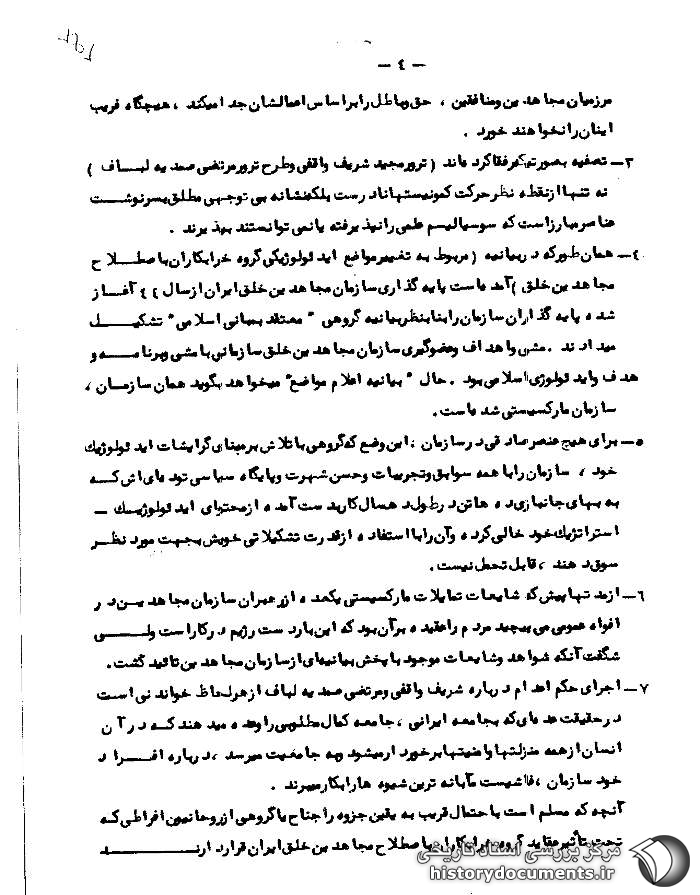 - ٤ -
مرزمیان مجاهدین ومنافقین ، حق وباطل رابراساس اعمالشان جدا میکند ، هیچگاه فریب
اینان رانخواهند خورد .
٣- تصفیه بصورتیکه رفقا کرده اند ( ترور مجید شریف واقفی وطرح ترور مرتضی صمدیه لباف )
نه تنها از نقطه نظر حرکت کمونیستها نادرست بلکه نشانه بی توجهی مطلق بسرنوشت
عناصر مبارز است که سوسیالیسم علمی را نپذیرفته یا نمی توانستند بپذیرند .
٤- همان طور که در بیانیه ( مربوط به تغییر مواضع ایدئولوژیکی گروه خرابکاران باصطلاح
مجاهدین خلق ) آمده است پایه گذاری سازمان مجاهدین خلق ایران از سال ٤٤ آغاز
شده پایه گذاران سازمان را بنا بنظر بیانیه گروهی " معتقد بمبانی اسلامی " تشکیل
میدادند . مشی واهداف وعضوگیری سازمان مجاهدین خلق سازمانی با مشی وبرنامه و
هدف وایدئولوژی اسلامی بود . حال " بیانیه اعلام مواضع " میخواهد بگوید همان سازمان ،
سازمان مارکسیستی شده است .
٥- برای هیچ عنصر صادقی در سازمان ، این وضع که گروهی با تلاش بر مبنای گرایشات ایدئولوژیک
خود ، سازمان را با همه سوابق وتجربیات وحسن شهرت وپایگاه سیاسی توده ای اش که
به بهای جانبازی ده ها تن در طول ده سال کار بدست آمده از محتوای ایدئولوژیک -
استراتژیک خود خالی کرده وآن را با استفاده از قدرت تشکیلاتی خویش بجهت مورد نظر
سوق دهند ، قابل تحمل نیست .
٦- از مدتها پیش که شایعات تمایلات مارکسیستی یکعده از رهبران سازمان مجاهدین در
افواه عمومی می پیچید مردم را عقیده بر آن بود که این بار دست رژیم در کار است ولی
شگفت آنکه شواهد وشایعات موجود با پخش بیانیه ای از سازمان مجاهدین تائید گشت .
٧- اجرای حکم اعدام درباره شریف واقفی ومرتضی صمدیه لباف از هر لحاظ خواندنی است
در حقیقت عده ای که بجامعه ایرانی ، جامعه کمال مطلوبی را وعده میدهند که در آن
انسان از همه منزلتها وامنیتها برخوردار میشود وبه جامعیت میرسد ، درباره افراد
خود سازمان ، فاشیست مآبانه ترین شیوه ها را بکار میبرند .
آنچه که مسلم است با حتمال قریب به یقین جزوه را جناح یا گروهی از روحانیون افراطی که
تحت تأثیر عقاید گروه خرابکاران باصطلاح مجاهدین خلق ایران قرار دارند
مرکز بررسی اسناد تاریخی
historydocuments.ir